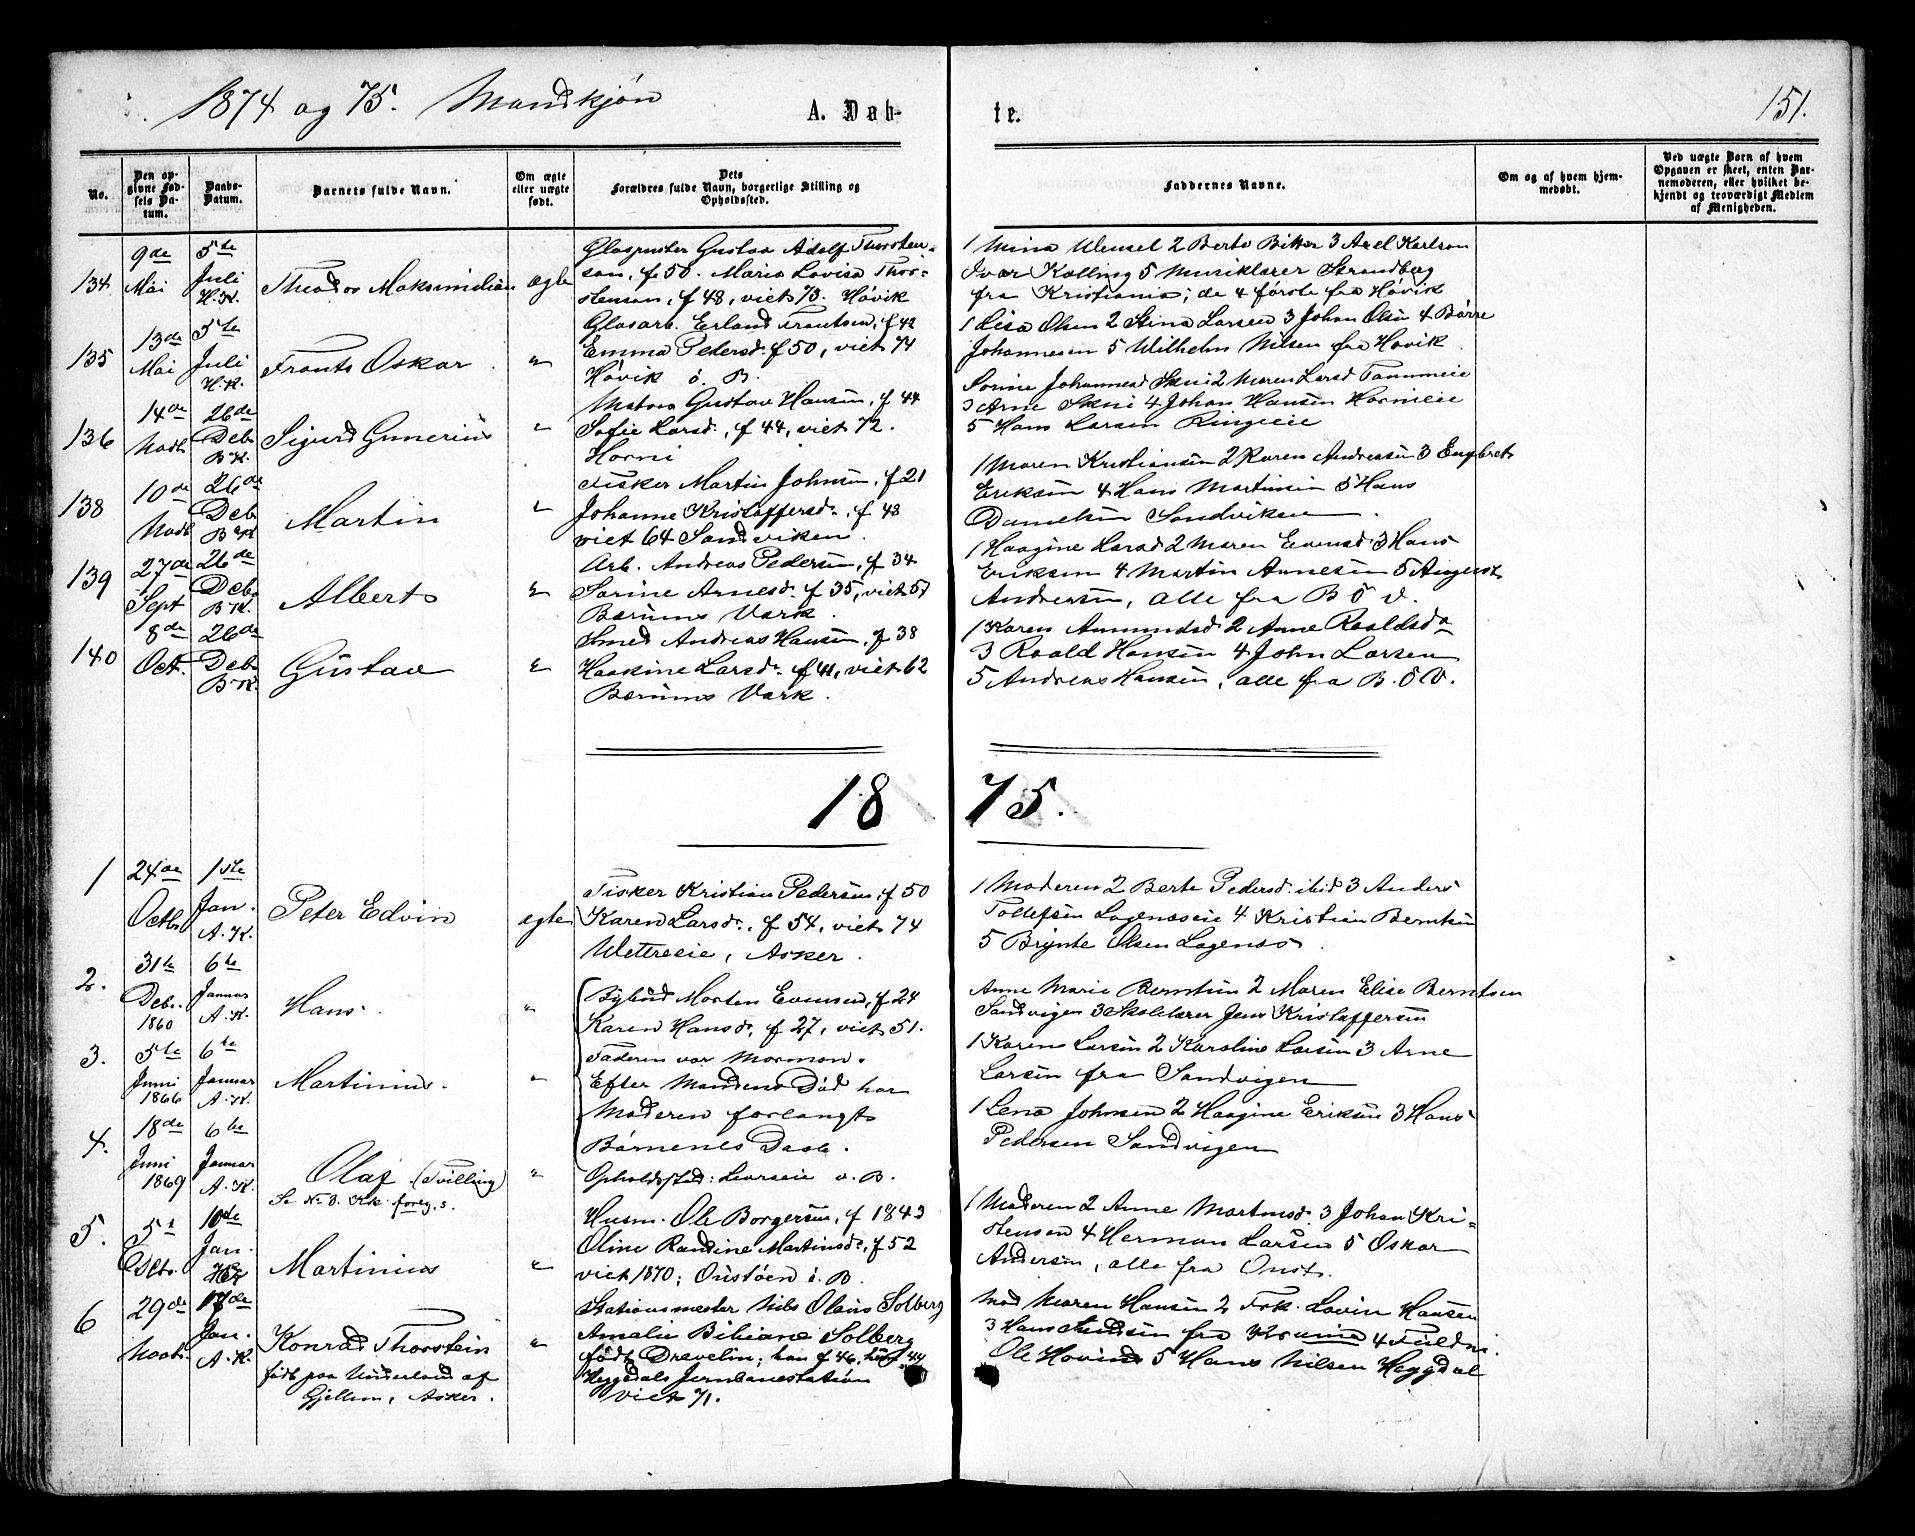 1874 og 75. Mandkjøn
A. Døb-
te.
151.
No.
Den op-
givne Fød-
sels Da-
tum.
Daabs-
Datum.
Barnets fulde Navn.
Om ægte
eller uægte
født.
Dets
Forældres fulde Navn, borgerlige Stilling og
Opholdssted.
Faddernes Navne.
Om og af hvem hjem-
medøbt.
Ved uægte Børn af hvem
Opgaven er skeet, enten Bar-
nemoderen, eller hvilket be-
kjendt og troværdigt Medlem
af Menigheden.
134
9de
Mai
5te
Juli
H.K.
Theodor Maksimilian
ægte
Glaspuster Gustav Adolf Thorsten-
son, f 50. Maria Lovisa Thor-
stenson, f 48, viet 73. Høvik
1 Mina Wensel 2 Berte Bikker 3 Axel Karlson
Ivar Kolling 5 Musiklærer Strandberg
fra Kristiania; de 4 første fra Høvik
135
13de
Mai
5te
Juli
H.K.
Frants Oskar
"
Glasarb. Erland Frantsen, f 42
Emma Pedersd. f 50, viet 74
Høvik ö. B.
1 Lisa Olsen 2 Stina Larsen 3 Johan Olsen 4 Börre
Johannesen 5 Wilhelm Nilsen fra Høvik
136
14de
Novb
26de
Deb.
B.K.
Sigurd Gunerius
"
Matros Gustav Hansen, f 44
Sofie Larsd., f 44, viet 72.
Horni
Sorine Johannesd Skui 2 Maren Larsd Tanumeie
3 Arne Skui 4 Johan Hansen Hornieie
5 Hans Larsen Ringieie
138
10de
Novb
26de
Deb
B.K
Martin
"
Fisker Martin Johnsen, f 21
Johanne Kristoffersd., f 48
viet 64 Sandviken.
1 Maren Kristiansen 2 Karen Andresen 3 Engbret
Eriksen 4 Hans Martinsen 5 Hans
Danielsen Sandviken
139
27de
Sept
26de
Deb.
B.K.
Albert
"
Arb. Andreas Pedersen, f 34
Sorine Arnesd. f 35, viet 57
Bærums Værk.
1 Haagine Larsd 2 Maren Evensd 3 Hans
Eriksen 4 Martin Arnesen 5 August
Andersen, alle fra B ö V.
140
8de
Oct.
26de
Deb.
B.K.
Gustav
"
Smed Andreas Hansen, f 38
Haakine Larsd. f 41, viet 62
Bærums Værk.
1 Karen Amundsd 2 Anne Roaldsd
3 Roald Hansen 4 John Larsen
5 Andreas Hansen, alle fra B. ö V.
18 75.
1
24de
Octb.
1ste
Jan.
A.K.
Peter Edvin
ægte
Fisker Kristian Pedersen, f 50
Karen Larsd., f 54, viet 74
Wettreeie, Asker.
1 Moderen 2 Berte Pedersd. ibid 3 Anders
Tollefsen 4 Kristian Berntsen
5 Brynte Olsen
2.
31te
Deb.
1860
6te
Januar
A.K.
Hans
"
Bybud Morten Evensen, f 24
Karen Hansd., f 27, viet 51.
Faderen var Mormon.
Efter Mandens Død har
Moderen forlangt
Børnenes Daab.
Opholdssted: Levreeie v. B.
Anne Marie Berntsen 2 Maren Elise Berntsen
Sandvigen 3 Skolelærer Jens Kristoffersen
3.
5te
Juni
1866
6te
Januar
A.K.
Martinius.
"
1 Karen Larsen 2 Karoline Larsen 3 Arne
Larsen fra Sandvigen
4.
18de
Juni
1869
6te
Januar
A.K.
Olaf (Tvilling)
Se No 3. Kvk. foreg. s.
"
1 Lena Johnsen 2 Haagine Eriksen 3 Hans
Pedersen Sandvigen
5.
5te
10de
Jan.
Martinius
"
Husm. Ole Borgersen, f 1843
Oline Randine Martinsd., f 52
viet 1870; Onstøen ö. B.
1 Moderen 2 Anne Martinsd. 3 Johan Kri-
stensen 4 Herman Larsen 5 Oskar
Andersen, alle fra Onst.
6
29de
Novb.
17de
Jan.
A.K.
Konrad Thorstein
født paa Underland af
Gjellum, Asker.
"
Stationsmester Nils Olaus Solberg
Amalie Bibiane Solberg
født Drevelin; han f 46, hun f 44
Heggedals Jernbanestation
viet 71.
Mad Maren Hansen 2 Frk. Lovise Hansen
3 Hans Knudsen fra 4 Fuldm.
Ole Hovind 5 Hans Nilsen Heggdal